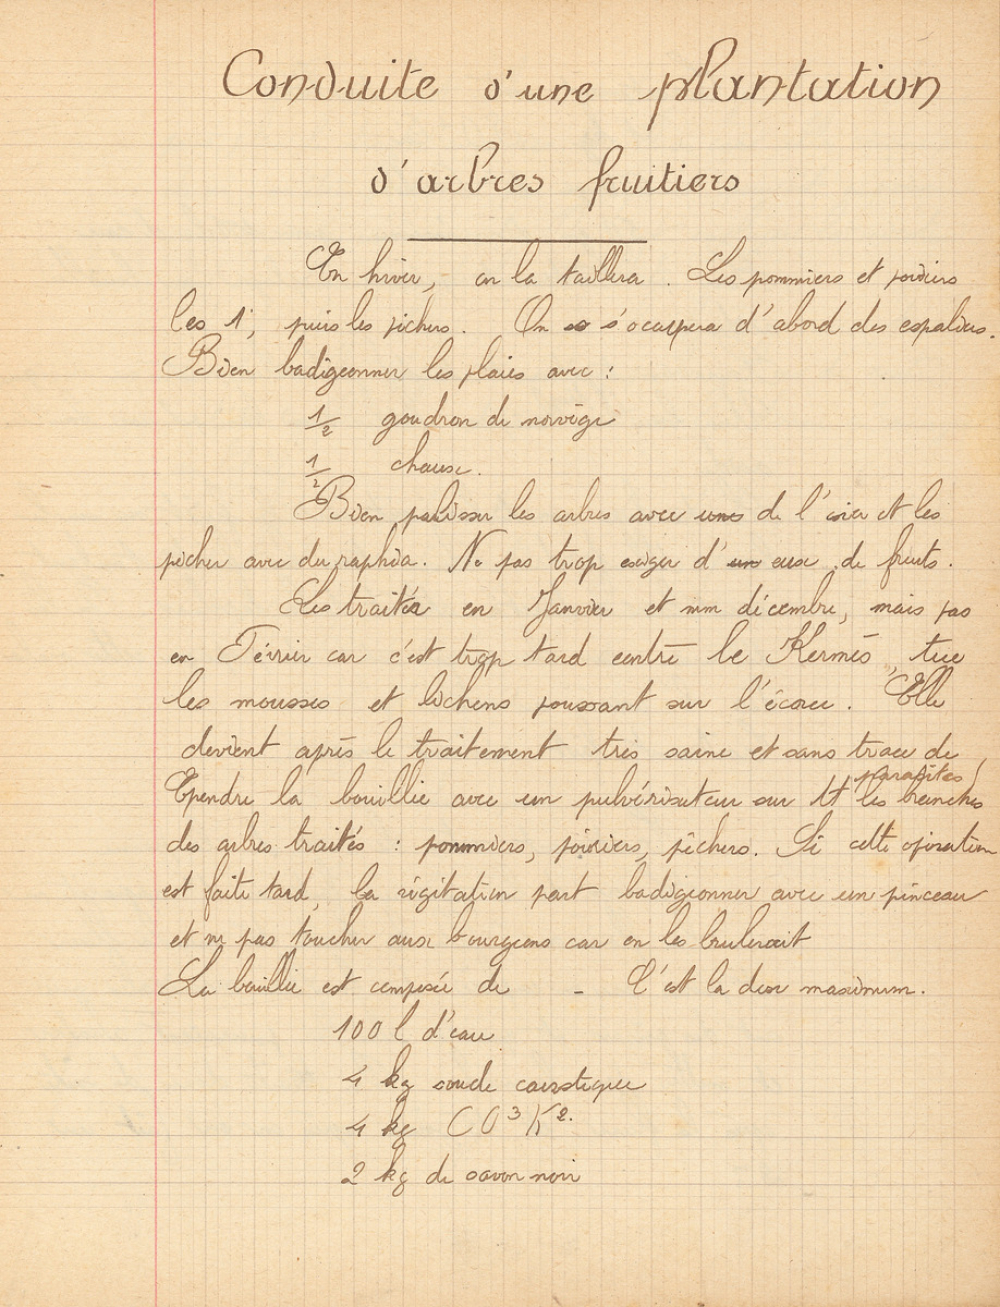 Conduite d'une plantation
d'arbres fruitiers
En hiver, on la taillera. Les pommiers et poiriers
les 1, puis les pêchers. On s'occupera d'abord des espaliers.
Bien badigeonner les plaies avec :
1/2 goudron de norvège
1/2 chaux.
Bien palisser les arbres avec de l'osier et les
pêcher avec du raphia. Ne pas trop exiger d'eux de fruits.
Les traiter en Janvier et mm décembre, mais pas
en Février car c'est trop tard contre le Kermès, tue
les mousses et lichens poussant sur l'écorce. Elle
devient après le traitement très saine et sans trace de
parasites !
Ependre la bouillie avec un pulvérisateur sur tt les branches
des arbres traités : pommiers, poiriers, pêchers. Si cette opération
est faite tard, la végétation part badigeonner avec un pinceau
et ne pas toucher aux bourgeons car on les brulerait
La bouillie est composée de - C'est la dose maximum.
100 l d'eau
4 kg soude caustique
4 kg CO³K².
2 kg de savon noir